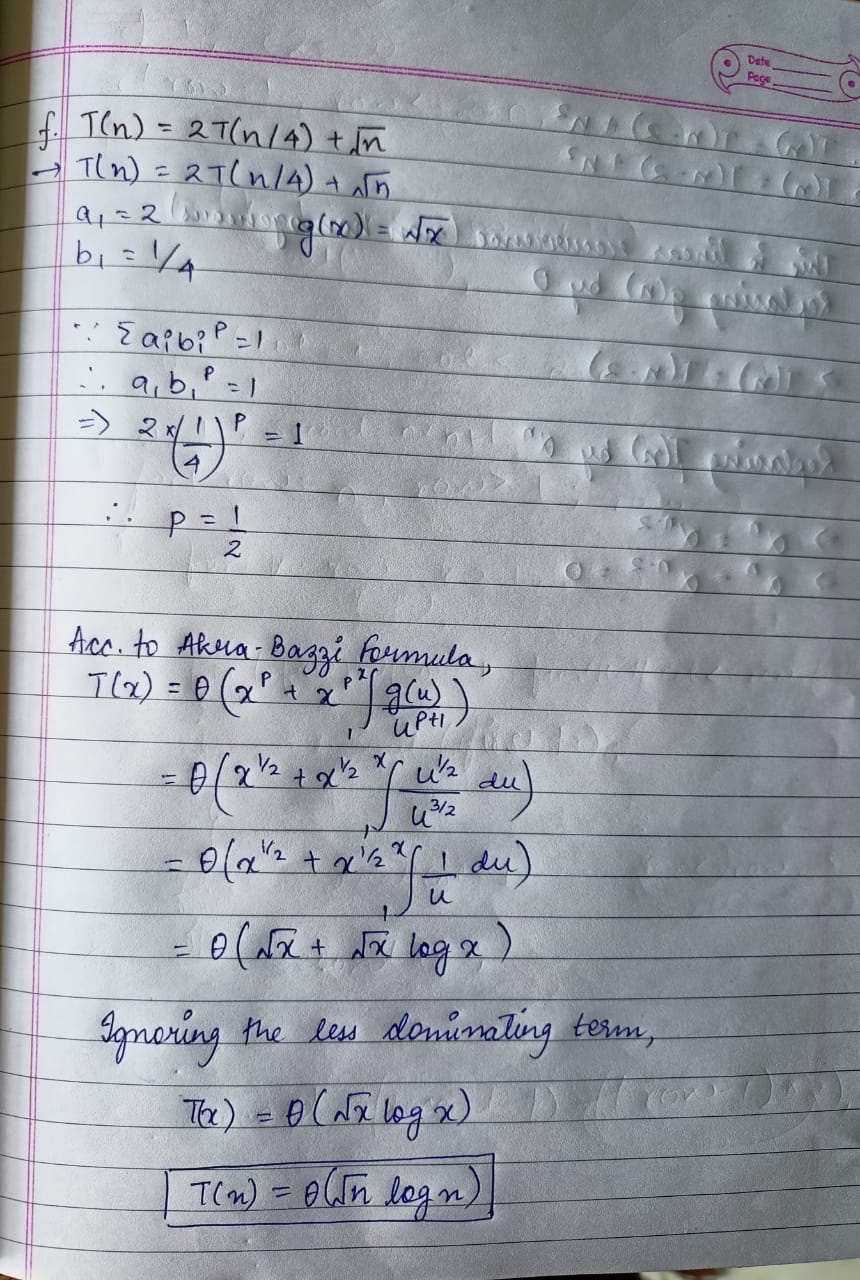 Date
Page
f. T(n) = 2T(n/4) + √n
→ T(n) = 2T(n/4) + √n
a₁ = 2 g(x) = √x
b₁ = 1/4
∵ Σaᵢbᵢᵖ = 1
∴ a₁b₁ᵖ = 1
=> 2×(1/4)ᵖ = 1
∴ p = 1/2
Acc. to Akra-Bazzi formula,
T(x) = θ(xᵖ + xᵖ ₁∫ˣ g(u)/uᵖ⁺¹)
= θ(x^1/2 + x^1/2 ₁∫ˣ u^1/2/u^3/2 du)
= θ(x^1/2 + x^1/2 ₁∫ˣ 1/u du)
= θ(√x + √x log x)
Ignoring the less dominating term,
T(x) = θ(√x log x)
T(n) = θ(√n log n)